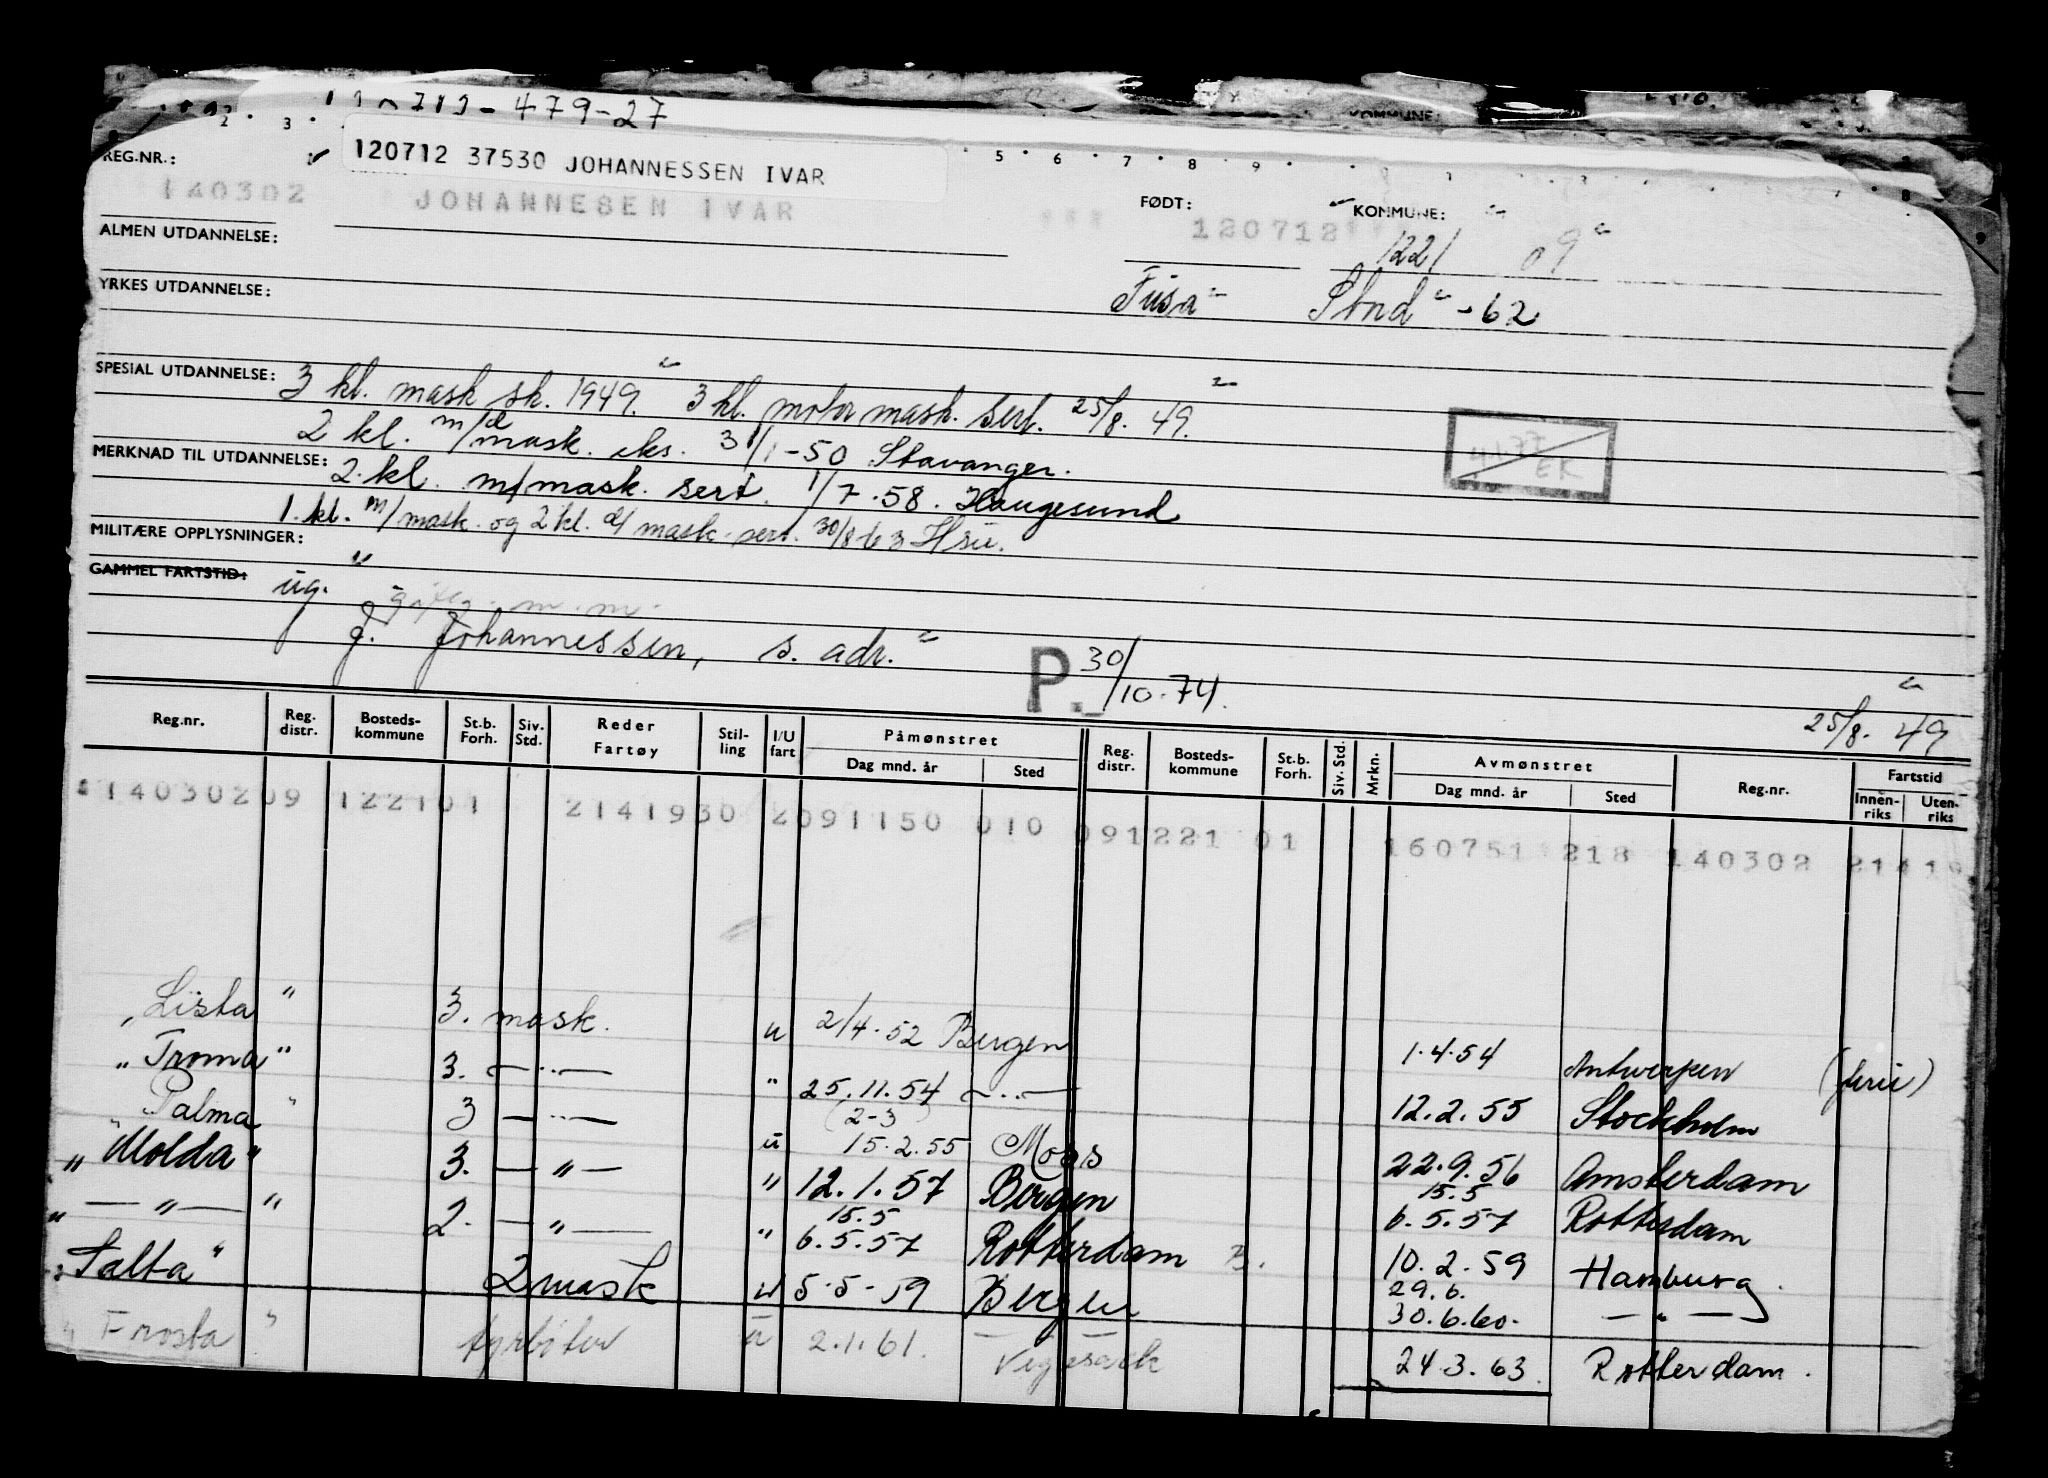 479-27
120712 37530 JOHANNESSEN IVAR
REG.NR.:
140302 JOHANNESEN IVAR
FØDT: 120712
KOMMUNE: 1221 09
ALMEN UTDANNELSE:
Fusa Stord - 62
YRKES UTDANNELSE:
SPESIAL UTDANNELSE: 3 kl. mask sk. 1949. 3 kl. motor mask. sert. 25/8. 49.
2 kl. m/d mask. eks. 31/1-50 Stavanger.
MERKNAD TIL UTDANNELSE: 2. kl. m/mask. sert. 1/7.58. Haugesund
1. kl. m/mask. og 2 kl. d/mask. sert. 30/8-63 Hsu.
MILITÆRE OPPLYSNINGER:
GAMMEL FARTSTID: ug.
J. Johannessen, s. adr.
P. 30/10.74.
25/8. 49
Reg.nr. Reg. distr. Bosteds-kommune St.b. Forh. Siv. Std. Reder Fartøy Stil-ling I/U fart Påmønstret Dag mnd. år Sted Reg. distr. Bosteds-kommune St.b. Forh. Siv. Std. Mrkn. Avmønstret Dag mnd. år Sted Reg.nr. Fartstid Innen-riks Uten-riks
14030209 122101 2141930 2091150 010 091221 01 160751 218 140302
"Lista" 3. mask. u 2/4.52 Bergen 1.4.54 Antwerpen (ferie)
"Troma" 3. — " — " 25.11.54 — " — 12.2.55 Stockholm
"Palma" 3 — " — u (2-3) 15.2.55 Moss 22.9.56 Amsterdam
"Molda" 3. — " — " 12.1.57 Bergen 15.5 6.5.57 Rotterdam
" — " — " 2. — " — " 15.5 6.5.57 Rotterdam 10.2.59 Hamburg.
"Salta" 2 mask u 5-5-59 Bergen 29.6. 30.6.60. — " —
"Frosta" fyrbøter u 2.1.61. Vegesack 24.3.63. Rotterdam.